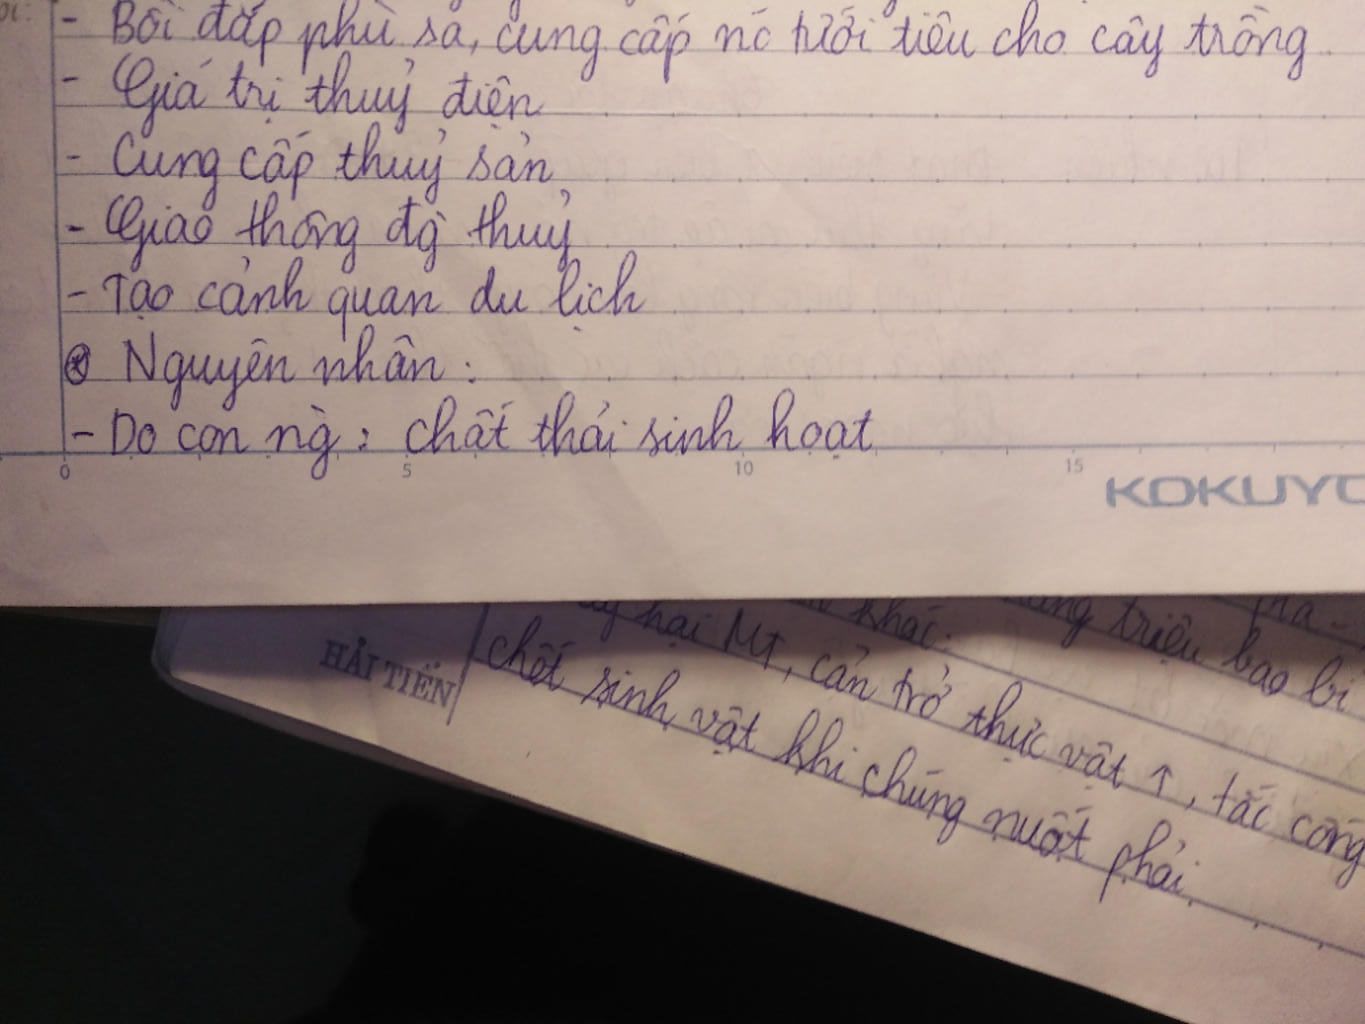 - Bồi đắp phù sa, cung cấp nc tưới tiêu cho cây trồng
- Giá trị thuỷ điện
- Cung cấp thuỷ sản
- Giao thông đg̀ thuỷ
- Tạo cảnh quan du lịch
* Nguyên nhân:
- Do con ng̀: chất thải sinh hoạt
0 5 10 15
KOKUYO
khác.
triệu bao bì
hại MT, cản trở thực vật ↑, tắc cống
HẢI TIẾN
chết sinh vật khi chúng nuốt phải.